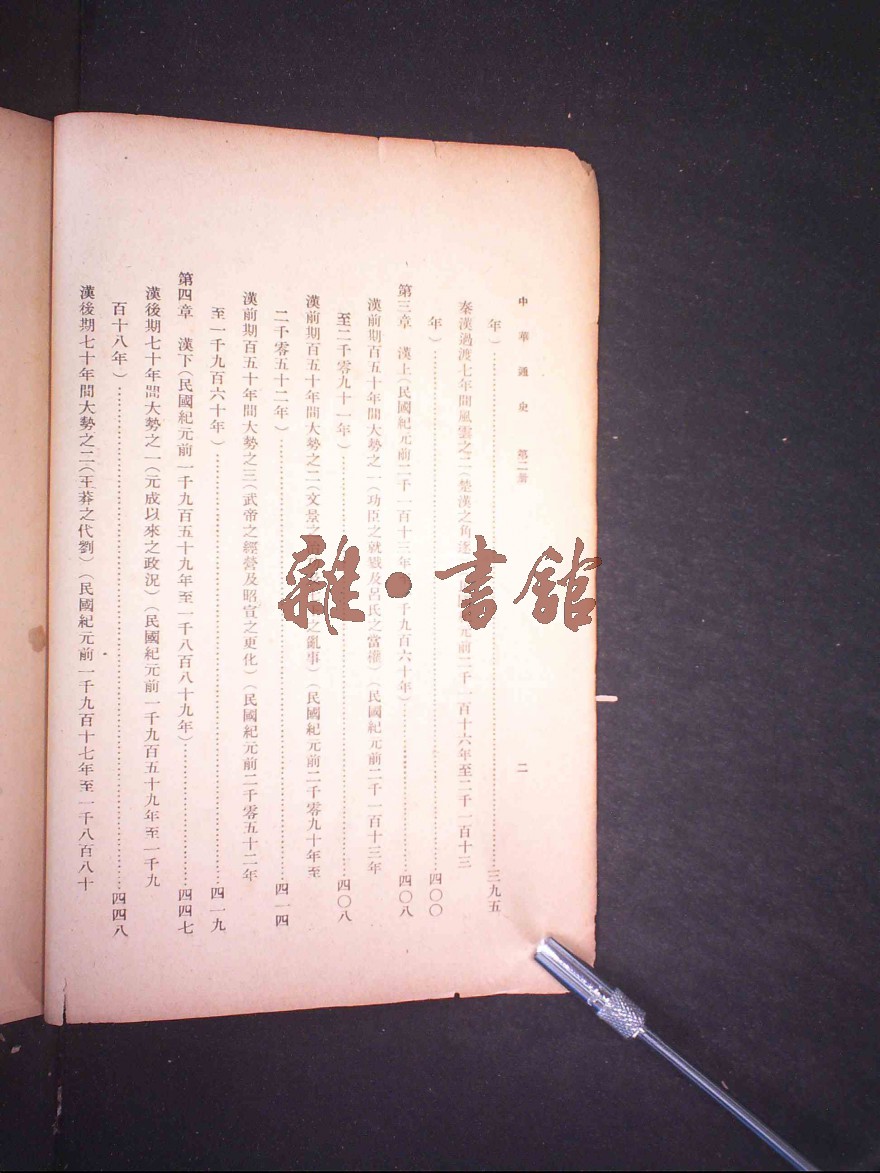 中華通史 第二册 二
年）……三九五
秦漢過渡七年間風雲之二（楚漢之角逐 元前二千一百十六年至二千一百十三
年）……四〇〇
第三章 漢上（民國紀元前二千一百十三年 千九百六十年）……四〇八
漢前期百五十年間大勢之一（功臣之就戮及呂氏之當權）（民國紀元前二千一百十三年
至二千零九十一年）……四〇八
漢前期百五十年間大勢之二（文景之 之亂事）（民國紀元前二千零九十年至
二千零五十二年）……四一四
漢前期百五十年間大勢之三（武帝之經營及昭宣之更化）（民國紀元前二千零五十二年
至一千九百六十年）……四一九
第四章 漢下（民國紀元前一千九百五十九年至一千八百八十九年）……四四七
漢後期七十年間大勢之一（元成以來之政況）（民國紀元前一千九百五十九年至一千九
百十八年）……四四八
漢後期七十年間大勢之二（王莽之代劉）（民國紀元前一千九百十七年至一千八百八十
雜·書館